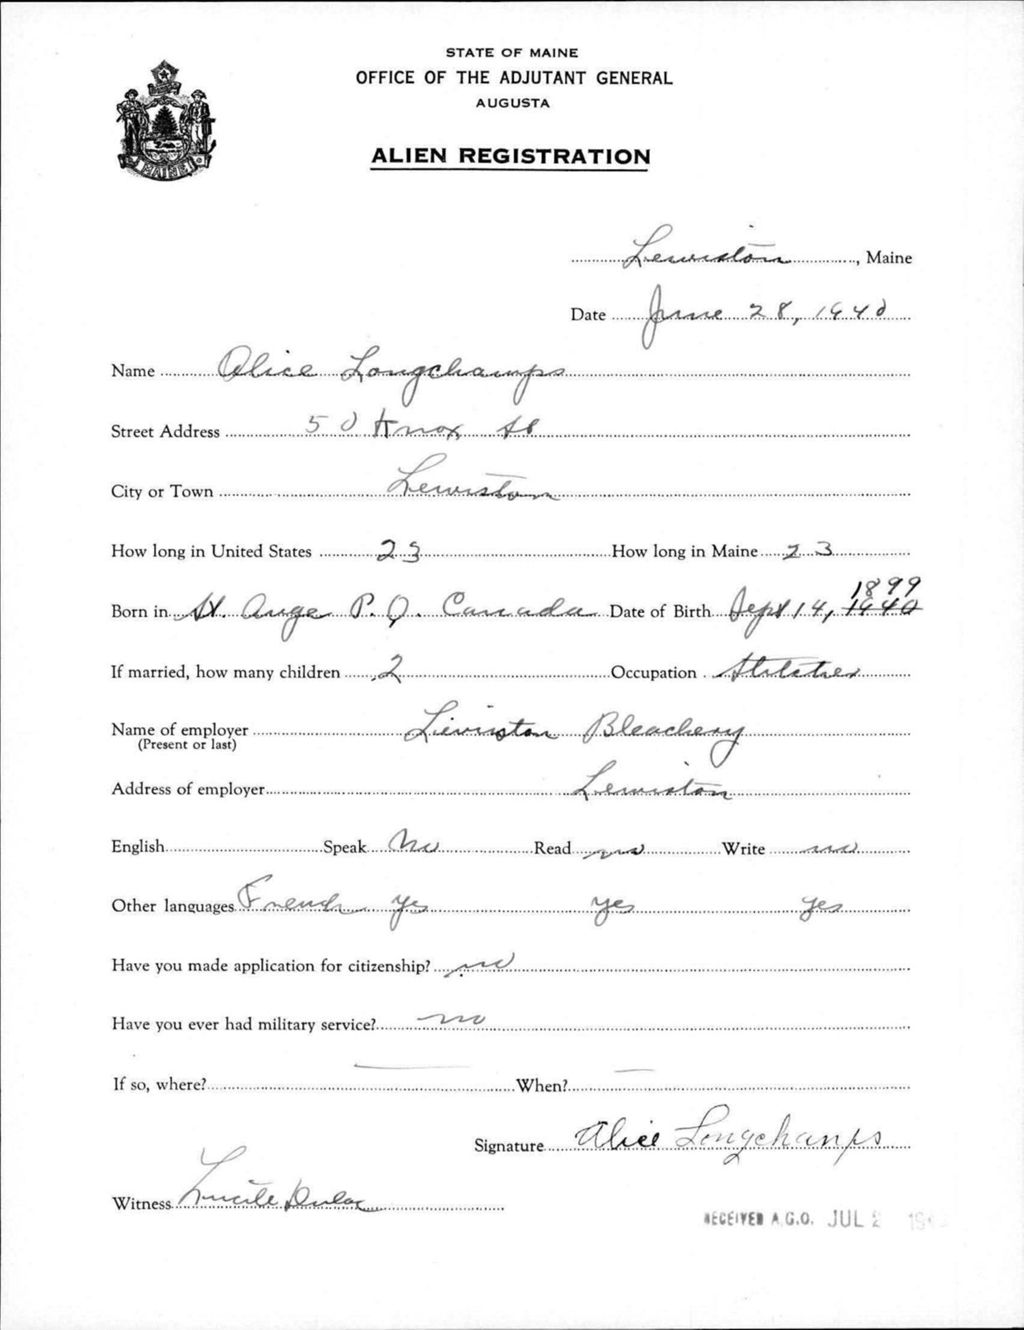 STATE OF MAINE
OFFICE OF THE ADJUTANT GENERAL
AUGUSTA
ALIEN REGISTRATION
MAINE
Lewiston, Maine
Date June 28, 1940
Name Alice Longchamps
Street Address 50 Knox St
City or Town Lewiston
How long in United States 23 How long in Maine 23
1899
Born in St. Ange P.Q. Canada Date of Birth Sept 14, 1940
If married, how many children 2 Occupation Stitcher
Name of employer Lewiston Bleachery
(Present or last)
Address of employer Lewiston
English Speak No Read no Write no
Other languages French yes yes yes
Have you made application for citizenship? no
Have you ever had military service? no
If so, where? — When? —
Signature Alice Longchamps
Witness Lucile Dulac
RECEIVED A.G.O. JUL 2